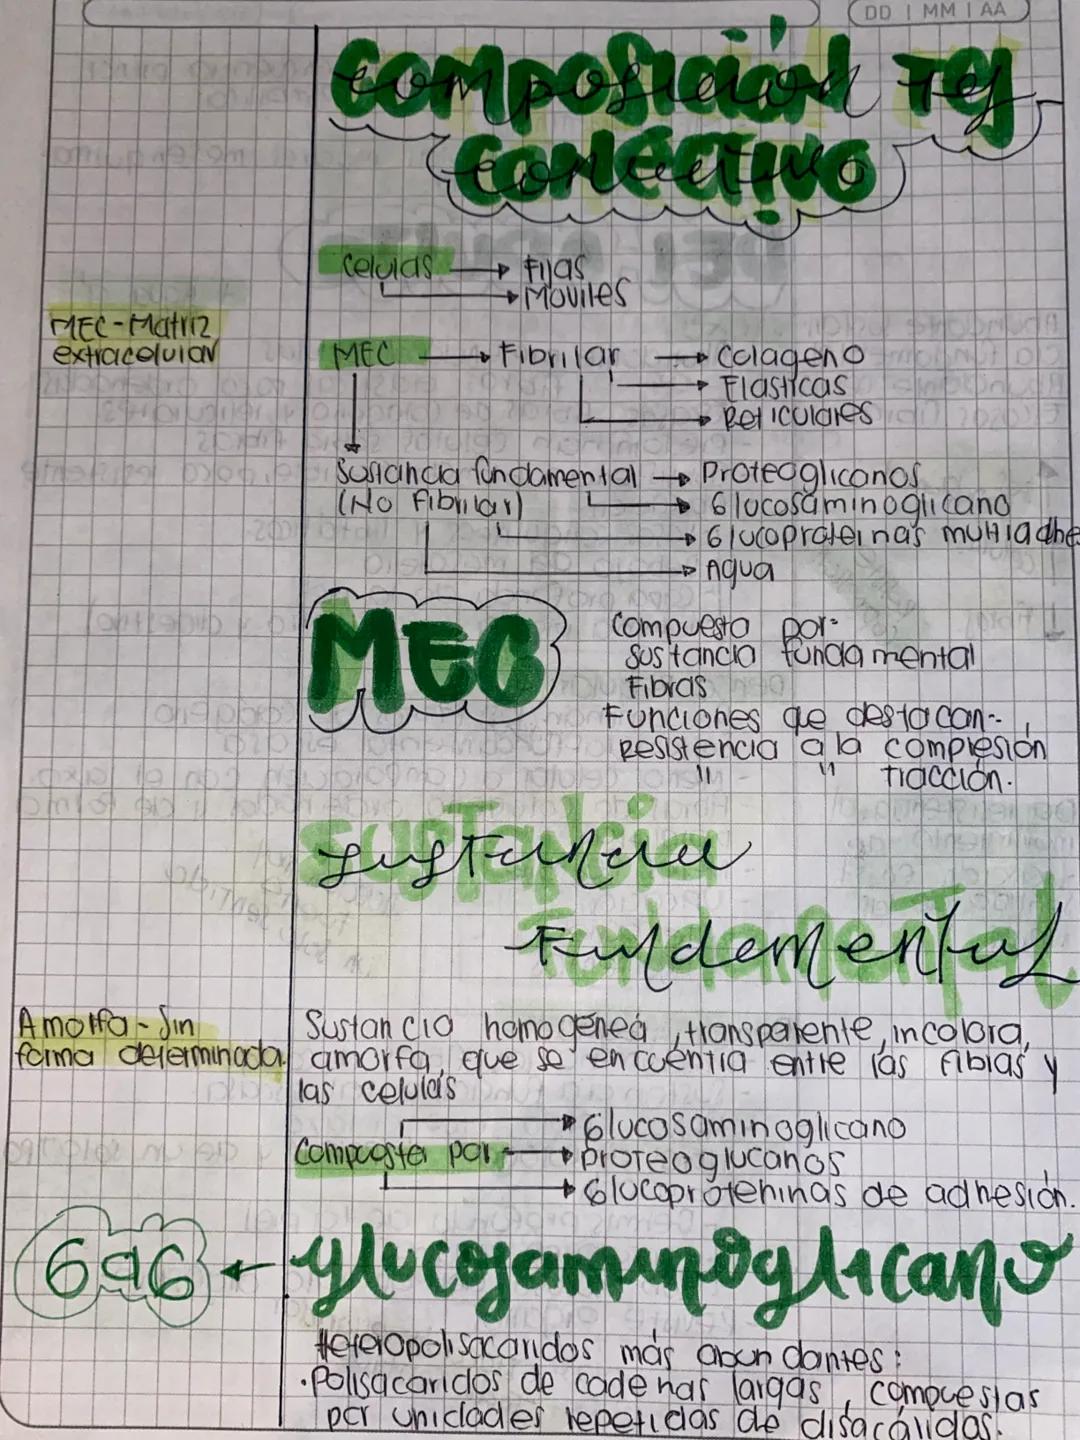 DD | MM | AA
composición Tej
conectivo
Celulas → Fijas
→ Moviles
MEC-Matriz
extracelular
MEC → Fibrilar → Colageno
→ Elasticas
→ Reticulares
Sustancia fundamental → Proteogliconos
(No Fibrilar) → Glucosaminoglicano
→ Glucoproteinas multiadhe
→ Agua
MEC
Compuesto por:
Sustancia fundamental
Fibras
Funciones que destacan:
Resistencia a la compresión
" " tracción.
Sustancia
Fundamental
Amorfa - Sin
forma determinada.
Sustancia homogenea, transparente, incolora,
amorfa, que se encuentra entre las fibras y
las celulas
→ Glucosaminoglicano
Compuesta por → proteoglucanos
→ Glucoproteninas de adhesión.
GAG ← glucosaminoglicano
Heteropolisacaridos más abundantes:
·Polisacaridos de cadenas largas, compuestas
por unidades repetidas de disacáridas.